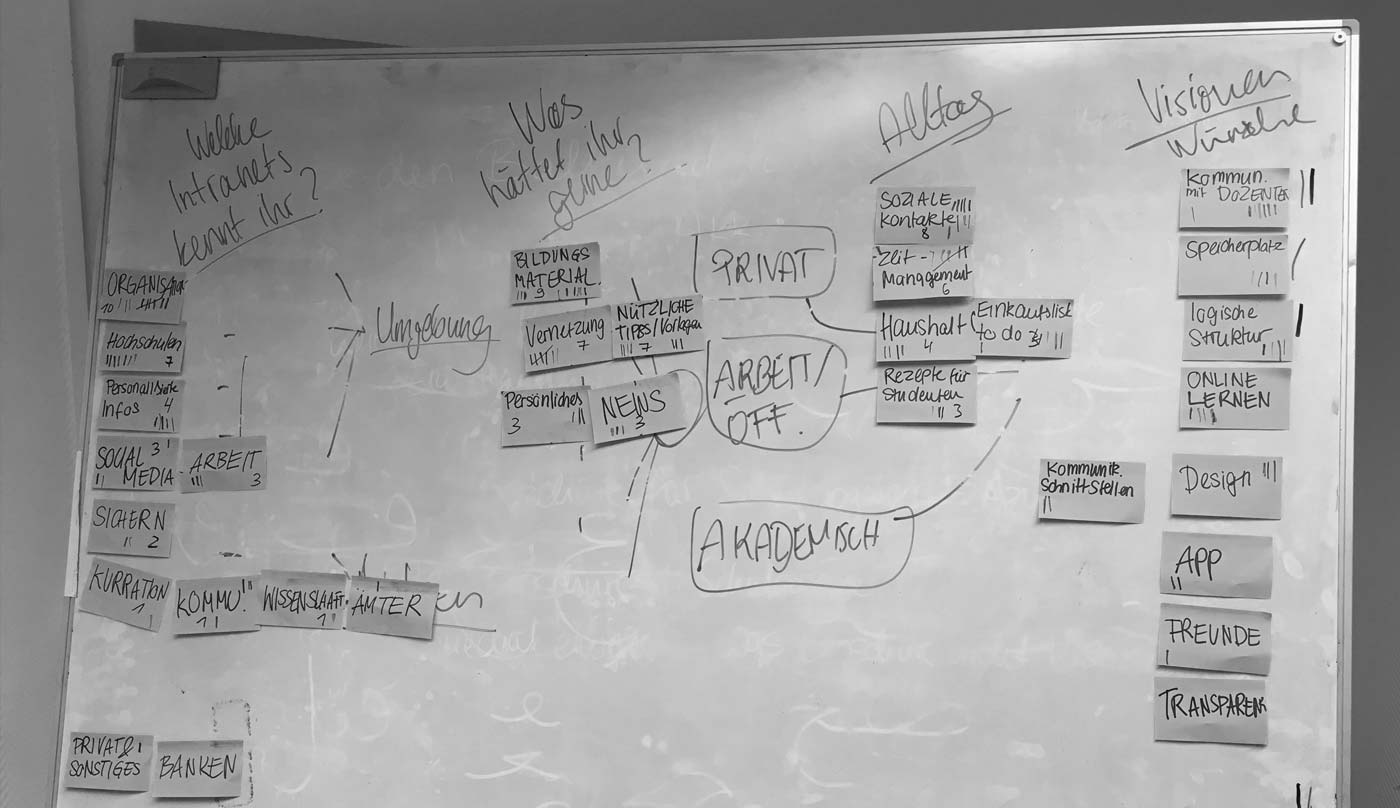 Welche
Intranets
kennt ihr?
ORGANISATION
10
Hochschulen
7
Infos 4
SOCIAL 3
MEDIA
ARBEIT
3
SICHERN
2
KURRATION
1
KOMMU.
1
WISSENSCHAFT
1
ÄMTER
PRIVAT&
SONSTIGES
BANKEN
Umgebung
Was
hättet ihr
gerne?
BILDUNGS
MATERIAL
9
Vernetzung
7
NÜTZLICHE
TIPPS/Vorlagen
7
Persönliches
3
NEWS
3
PRIVAT
ARBEIT/
ÖFF.
AKADEMISCH
Alltag
SOZIALE
Kontakte
8
Zeit-
Management
6
Haushalt
4
Einkaufslist
to do 3
Rezepte für
Studenten
3
Visionen
Wünsche
Kommun.
mit DOZENTEN
Speicherplatz
logische
Struktur
ONLINE
LERNEN
Kommunik.
Schnittstellen
Design
APP
FREUNDE
TRANSPARENZ